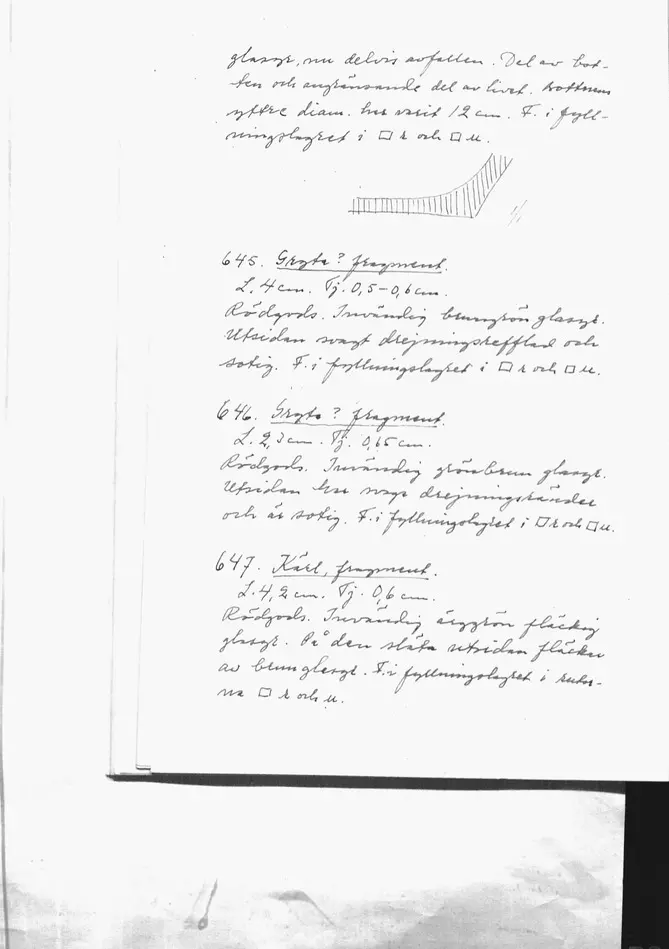 glasyr, nu delvis avfallen. Del av bot-
ten och angränsande del av livet. Bottnens
yttre diam. har varit 12 cm. F. i fyll-
ningslagret i □ r och □ u.
1/1
645. Gryta? fragment.
L. 4 cm. Tj. 0,5-0,6 cm.
Rödgods. Invändig brungrön glasyr.
Utsidan svagt drejningsrefflad och
sotig. F. i fyllningslagret i □ r och □ u.
646. Gryta? fragment.
L. 2,7 cm. Tj. 0,65 cm.
Rödgods. Invändig grönbrun glasyr.
Utsidan har svaga drejningsränder
och är sotig. F. i fyllningslagret i □ r och □ u.
647. Kärl, fragment.
L. 4,2 cm. Tj. 0,6 cm.
Rödgods. Invändig ärggrön fläckig
glasyr. På den släta utsidan fläckar
av brun glasyr. F. i fyllningslagret i rutor-
na □ r och u.